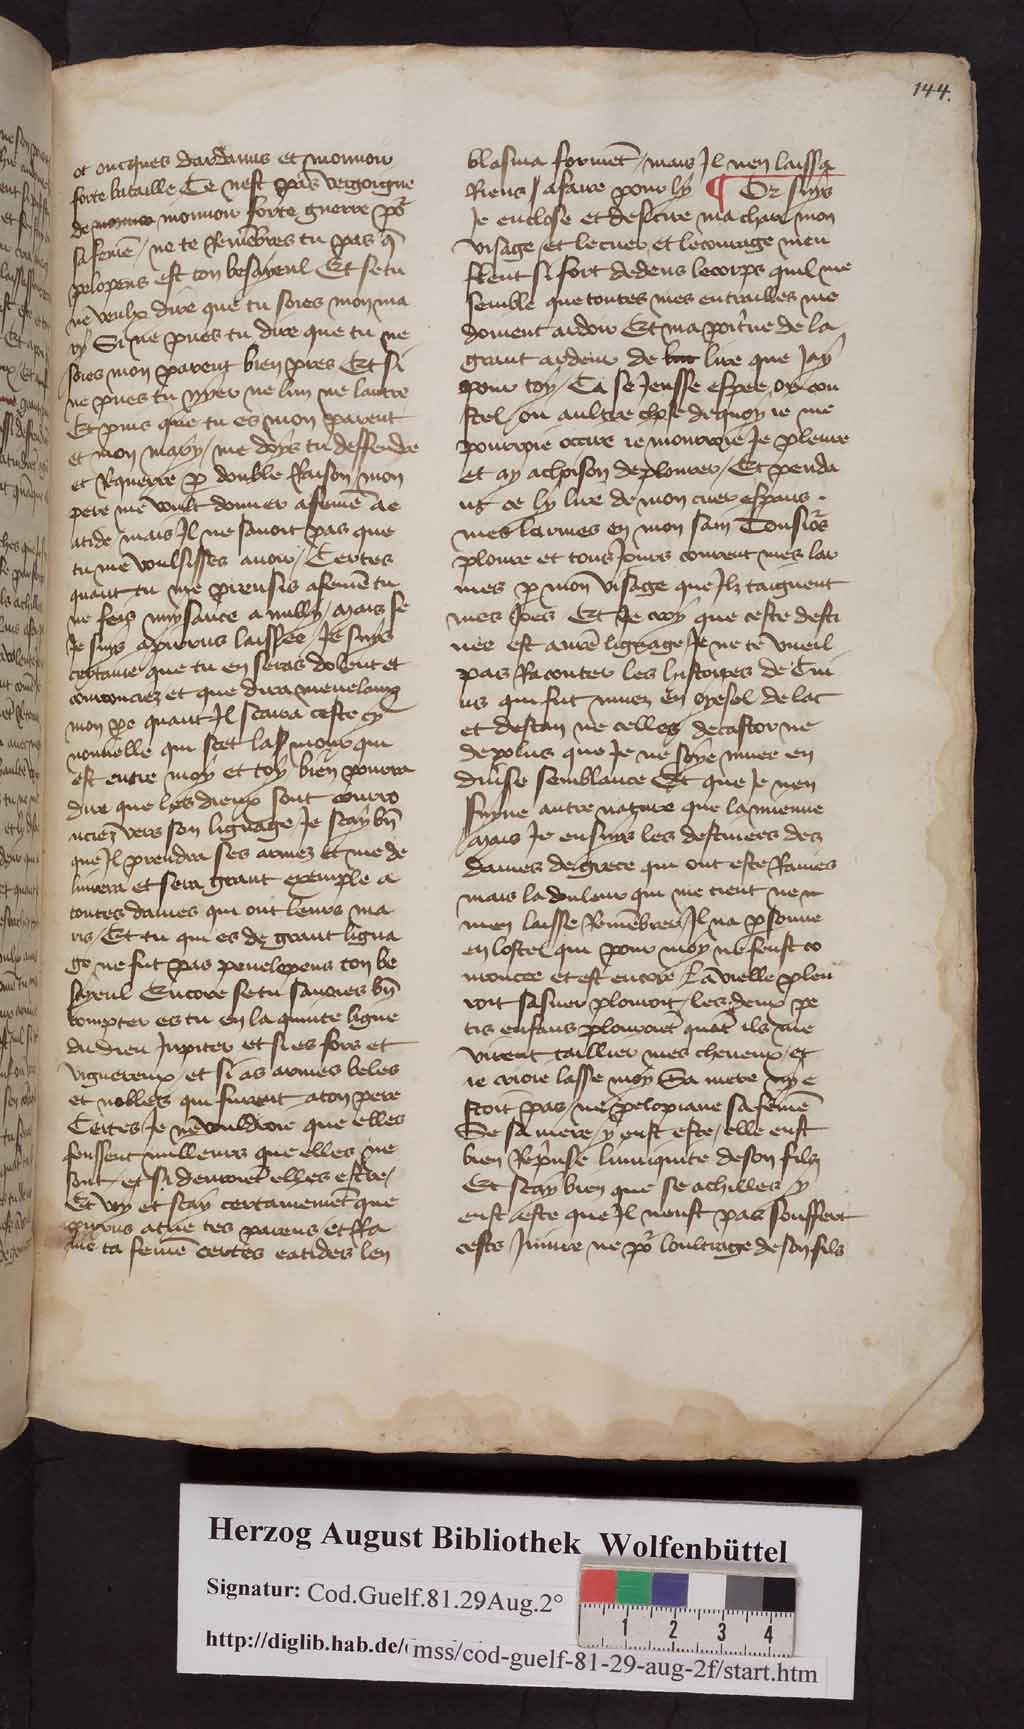 144.
et oncques dardanus et monnoir
forte bataille Ce nest pas vergoigne
de monnoir forte guerre po͛
sa feme͂ / ne te reme͂bres tu pas q͂
pelopens est ton besayeul Et se tu
ne veulx dire que tu soies mon ma
ry Si ne pues tu dire que tu ne
soies mon parent bien pres Et si
ne pues tu nyer ne lun ne lautre
Et puis que tu es mon parent
et mon mary / me doys tu deffendre
et Requerre p double Raison mon
pere me voult donner a feme͂ ae
atide mais Jl ne sauoit pas que
tu me voulsisses auoir / Certes
quant tu me prensis a feme͂ tu
ne feis nuysance a nully / mais se
Je suys a pirrus laissee Je suys
certaine que tu en seras dolent et
courouciez et que dira menelaus
mon pe quant Jl scaura ceste cy
nouuelle qui scet la mour qui
est entre moy et toy bien pourra
dire que les dieux sont couro
uciez vers son lignage Je scay bn͂
que Jl prendra ses armez et me de
liurera et sera grant exemple a
toutes dames qui ont leurs ma
ris / Et tu qui es de grant ligna
ge ne fut pas penelopens ton be
sayeul Encore se tu sauoies bn͂
compter es tu en la quinte ligne
du dieu Jupiter et si es fors et
viguereux / et si as armes beles
et nobles qui furent a ton pere
Certes Je ne vouldroie que elles
feussent milleurs que elles ne
sont et si deuroie͂t elles estre /
Et vy et scay certaineme͂t que
pirrus a tue tes parens et fla
me ta feme͂ certes eatides len
blasma forme͂t / mais Jl nen laissa
Riens / a faire pour ly ¶ Or suys
Je enclose et desire ma char mon
visage et le cuer et le courage meu
flent si fort dedens le corps quil me
semble que toutes mes entrailles me
doient ardoir Et ma poit͛ne de la
grant ardeur de lire que Jay
pour toy Ca se Jeusse espee ou cou
stel / ou aultre chose de quoy ie me
pourroie occire ie mourroie Je pleure
et ay achoison de plourer / Et penda
nt ce ly lire de mon cuer espans .
mes larmes en mon sain Tousio͛s
ploure et tous Jours courent mes lar
mes p mon visage que Jlz taignent
mes Joes Et Je croy que ceste desti
nee est a nr͂e lignage Je ne te vueil
pas Raconter les hystoires de
us qui fut muez en oysel de lac
et destan ne celles de castor ne
de polus que Je ne soye muee en
diu͛se semblance Et que Je nen
suyue autre nature que la mienne
Mais Je ensuys les destinees des
dames de grece qui ont este Rauies
mais la douleur qui me tient ne
men laisse Reme͂brer / Jl na p sonne
en lostel qui pour moy ne feust co
uroucee et est encore La vielle pleu
roit sa suer plouroit / les deux pe
tis enfans plouroie͂t qua͂t ils me
virent taillier mes cheueux / et
ie crioie lasse moy Sa mere ny e
stoit pas / ne pelopiane sa feme͂
Se sa mere y eust este / elle eust
bien Rep͛nse liniquite de son filz
Et scay bien que se achilles y
eust este que Jl neust pas souffert
ceste Jniure ne po͛ loultrage de son fils
Herzog August Bibliothek Wolfenbüttel
Signatur: Cod.Guelf.81.29Aug.2°
http://diglib.hab.de/mss/cod-guelf-81-29-aug-2f/start.htm
1 2 3 4